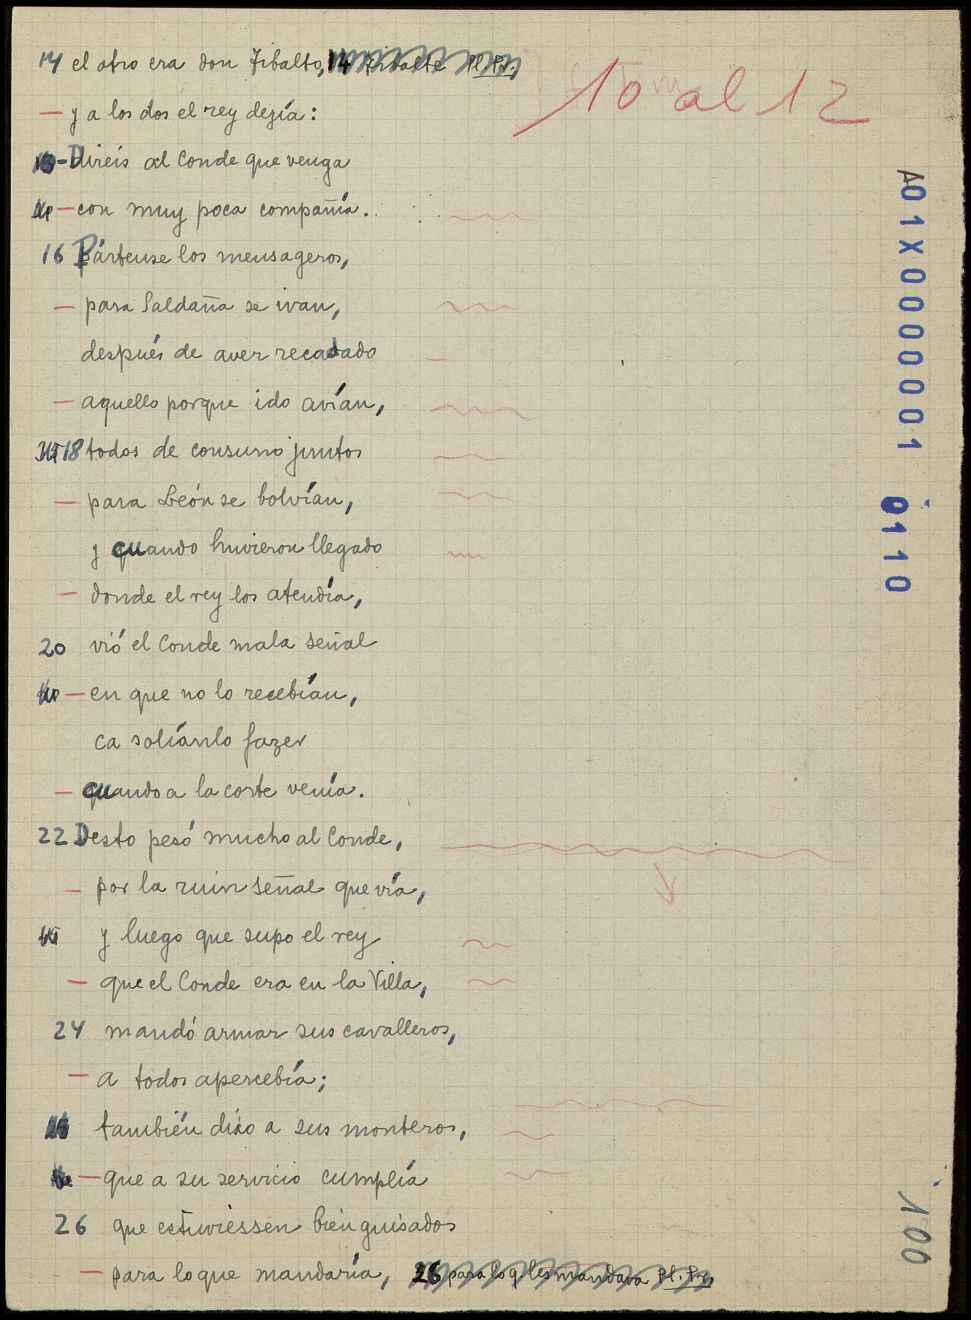 14 el otro era don Tibalto, 14 Tibalte Pl. Pr.,
10 al 12
— y a los dos el rey dezía:
- Direis al Conde que venga
— con muy poca compañía.
16 Pártense los mensageros,
— para Saldaña se ivan,
después de aver recadado
— aquello porque ido avían,
18 todos de consuno juntos
— para León se bolvían,
y quando huvieron llegado
— donde el rey los atendía,
20 vió el Conde mala señal
— en que no lo recebían,
ca solíanlo fazer
— quando a la corte venía.
22 Desto pesó mucho al Conde,
— por la ruin señal que vía,
y luego que supo el rey
— que el Conde era en la Villa,
24 mandó armar sus cavalleros,
— a todos apercebía;
también dixo a sus monteros,
— que a su servicio cumplía
26 que estuviessen bien guisados
— para lo que mandaría, 26 para lo q. les mandava Pl. Pr.,
A01X0000001 0110
100